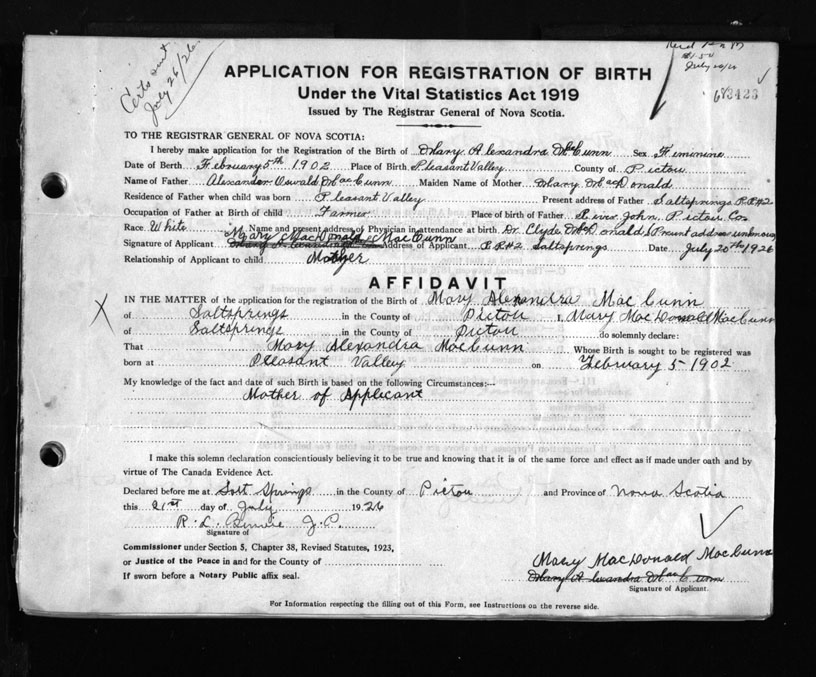 Certs sent
July 26/26
July 20/26
APPLICATION FOR REGISTRATION OF BIRTH
Under the Vital Statistics Act 1919
Issued by The Registrar General of Nova Scotia.
TO THE REGISTRAR GENERAL OF NOVA SCOTIA:
I hereby make application for the Registration of the Birth of Mary Alexandra McCunn Sex Feminine
Date of Birth February 5th 1902 Place of Birth Pleasant Valley County of Pictou
Name of Father Alexander Oswald MacCunn Maiden Name of Mother Mary MacDonald
Residence of Father when child was born Pleasant Valley Present address of Father Saltsprings R.R#2
Occupation of Father at Birth of child Farmer Place of birth of Father River John, Pictou Co
Race White Name and present address of Physician in attendance at birth Dr. Clyde McDonald (Present address unknown)
Mary MacDonald MacCunn
Signature of Applicant Address of Applicant R R #2 Saltsprings Date July 20th 1926
Relationship of Applicant to child Mother
AFFIDAVIT
IN THE MATTER of the application for the registration of the Birth of Mary Alexandra MacCunn
of Saltsprings in the County of Pictou I, Mary MacDonald MacCunn
of Saltsprings in the County of Pictou do solemnly declare:
That Mary Alexandra MacCunn Whose Birth is sought to be registered was
born at Pleasant Valley on February 5 1902
My knowledge of the fact and date of such Birth is based on the following Circumstances:—
Mother of Applicant
I make this solemn declaration conscientiously believing it to be true and knowing that it is of the same force and effect as if made under oath and by
virtue of The Canada Evidence Act.
Declared before me at Salt Springs in the County of Pictou and Province of Nova Scotia
this 21st day of July 1926
R. L. J. P.
Signature of
Commissioner under Section 5, Chapter 38, Revised Statutes, 1923,
or Justice of the Peace in and for the County of
If sworn before a Notary Public affix seal.
Mary MacDonald MacCunn
Mary Alexandra MacCunn
Signature of Applicant.
For Information respecting the filling out of this Form, see Instructions on the reverse side.